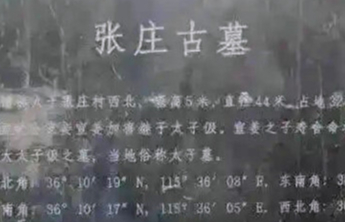 张庄古墓
张庄村西北，墓高5米，直径44米，占地32
宣姜加害能于太子伋。宣姜之子寿舍命
太子伋之墓，当地俗称太子墓。
北角：36° 10′ 19″ N, 115° 36′ 08″ E. 东南角：3
南角：36° 10′ 17″ N, 115° 36′ 05″ E. 西北角：3